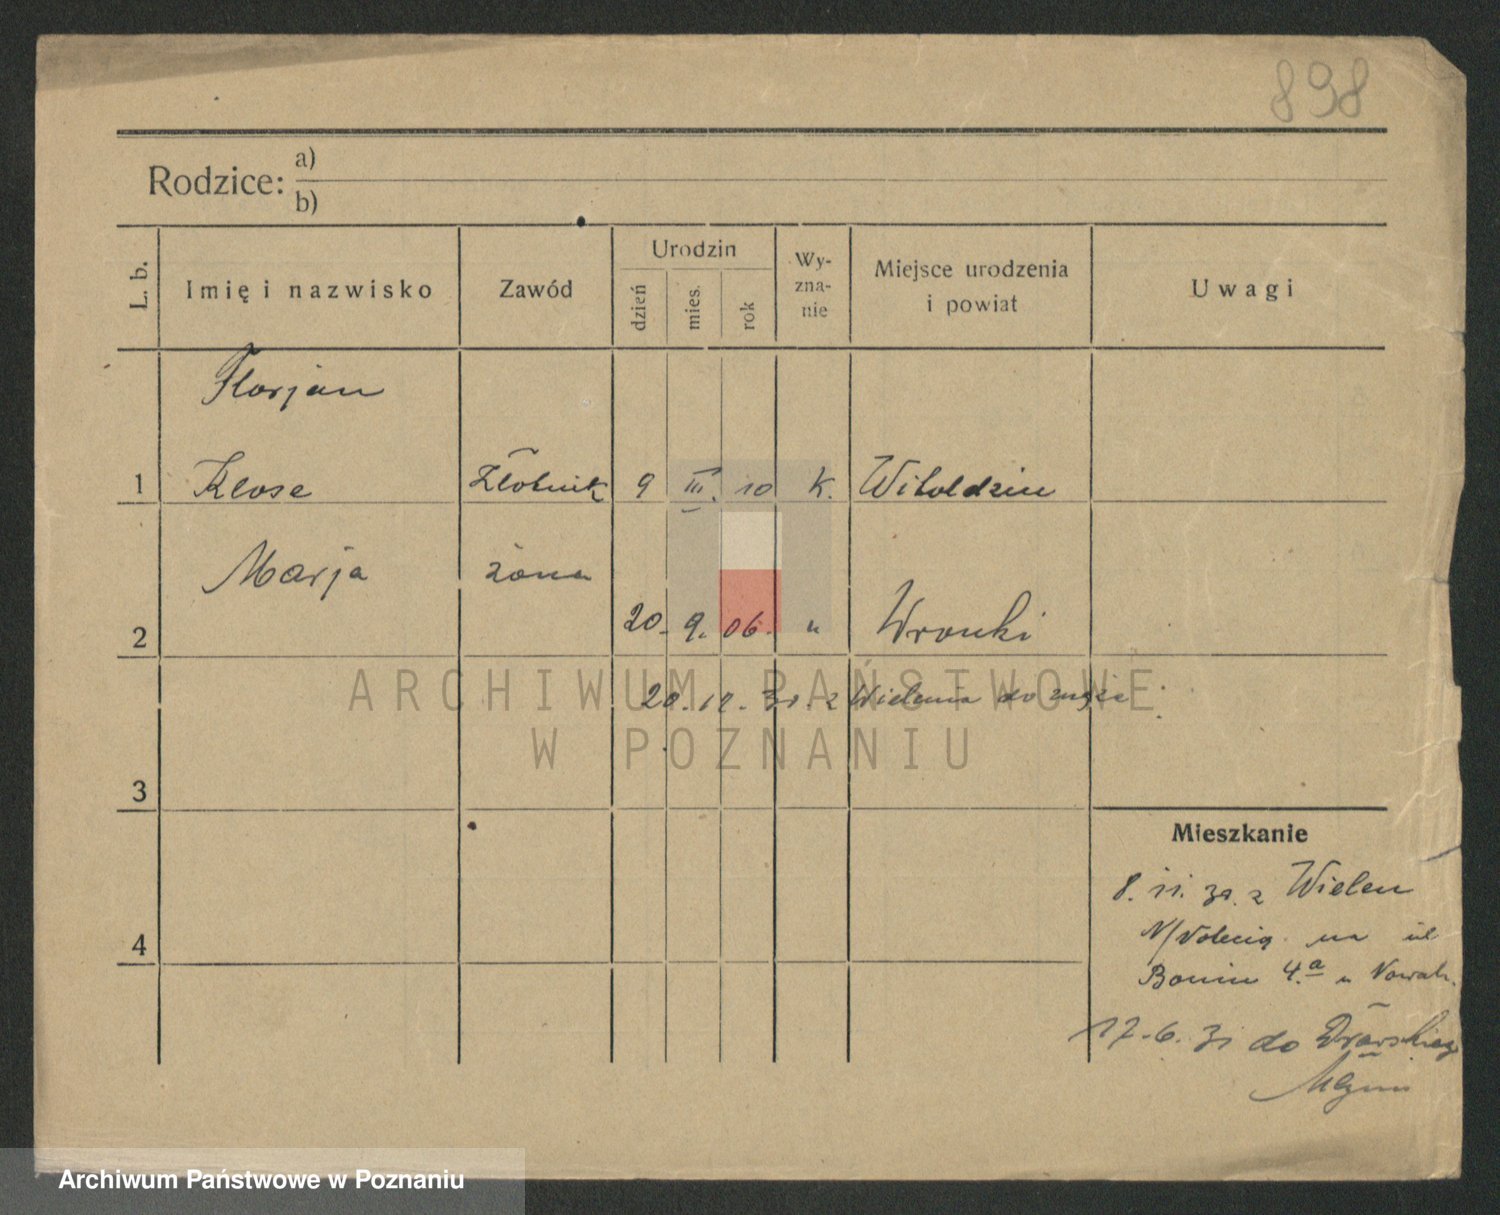 898
Rodzice: a)
b)
L. b. Imię i nazwisko Zawód Urodzin dzień mies. rok Wy-zna-nie Miejsce urodzenia i powiat Uwagi
Florjan
1 Klose Złotnik 9 III. 10 K. Witoldzin
Marja żona
2 20. 9. 06. " Wronki
20. 12. z Wielenia do męża
ARCHIWUM PAŃSTWOWE
W POZNANIU
3
Mieszkanie
8. 11. 30. z Wieleń
N/Notecią na ul
4 Bonin 4.a u Nowak.
17-6. 31 do Drawskiego
Młyna
Archiwum Państwowe w Poznaniu